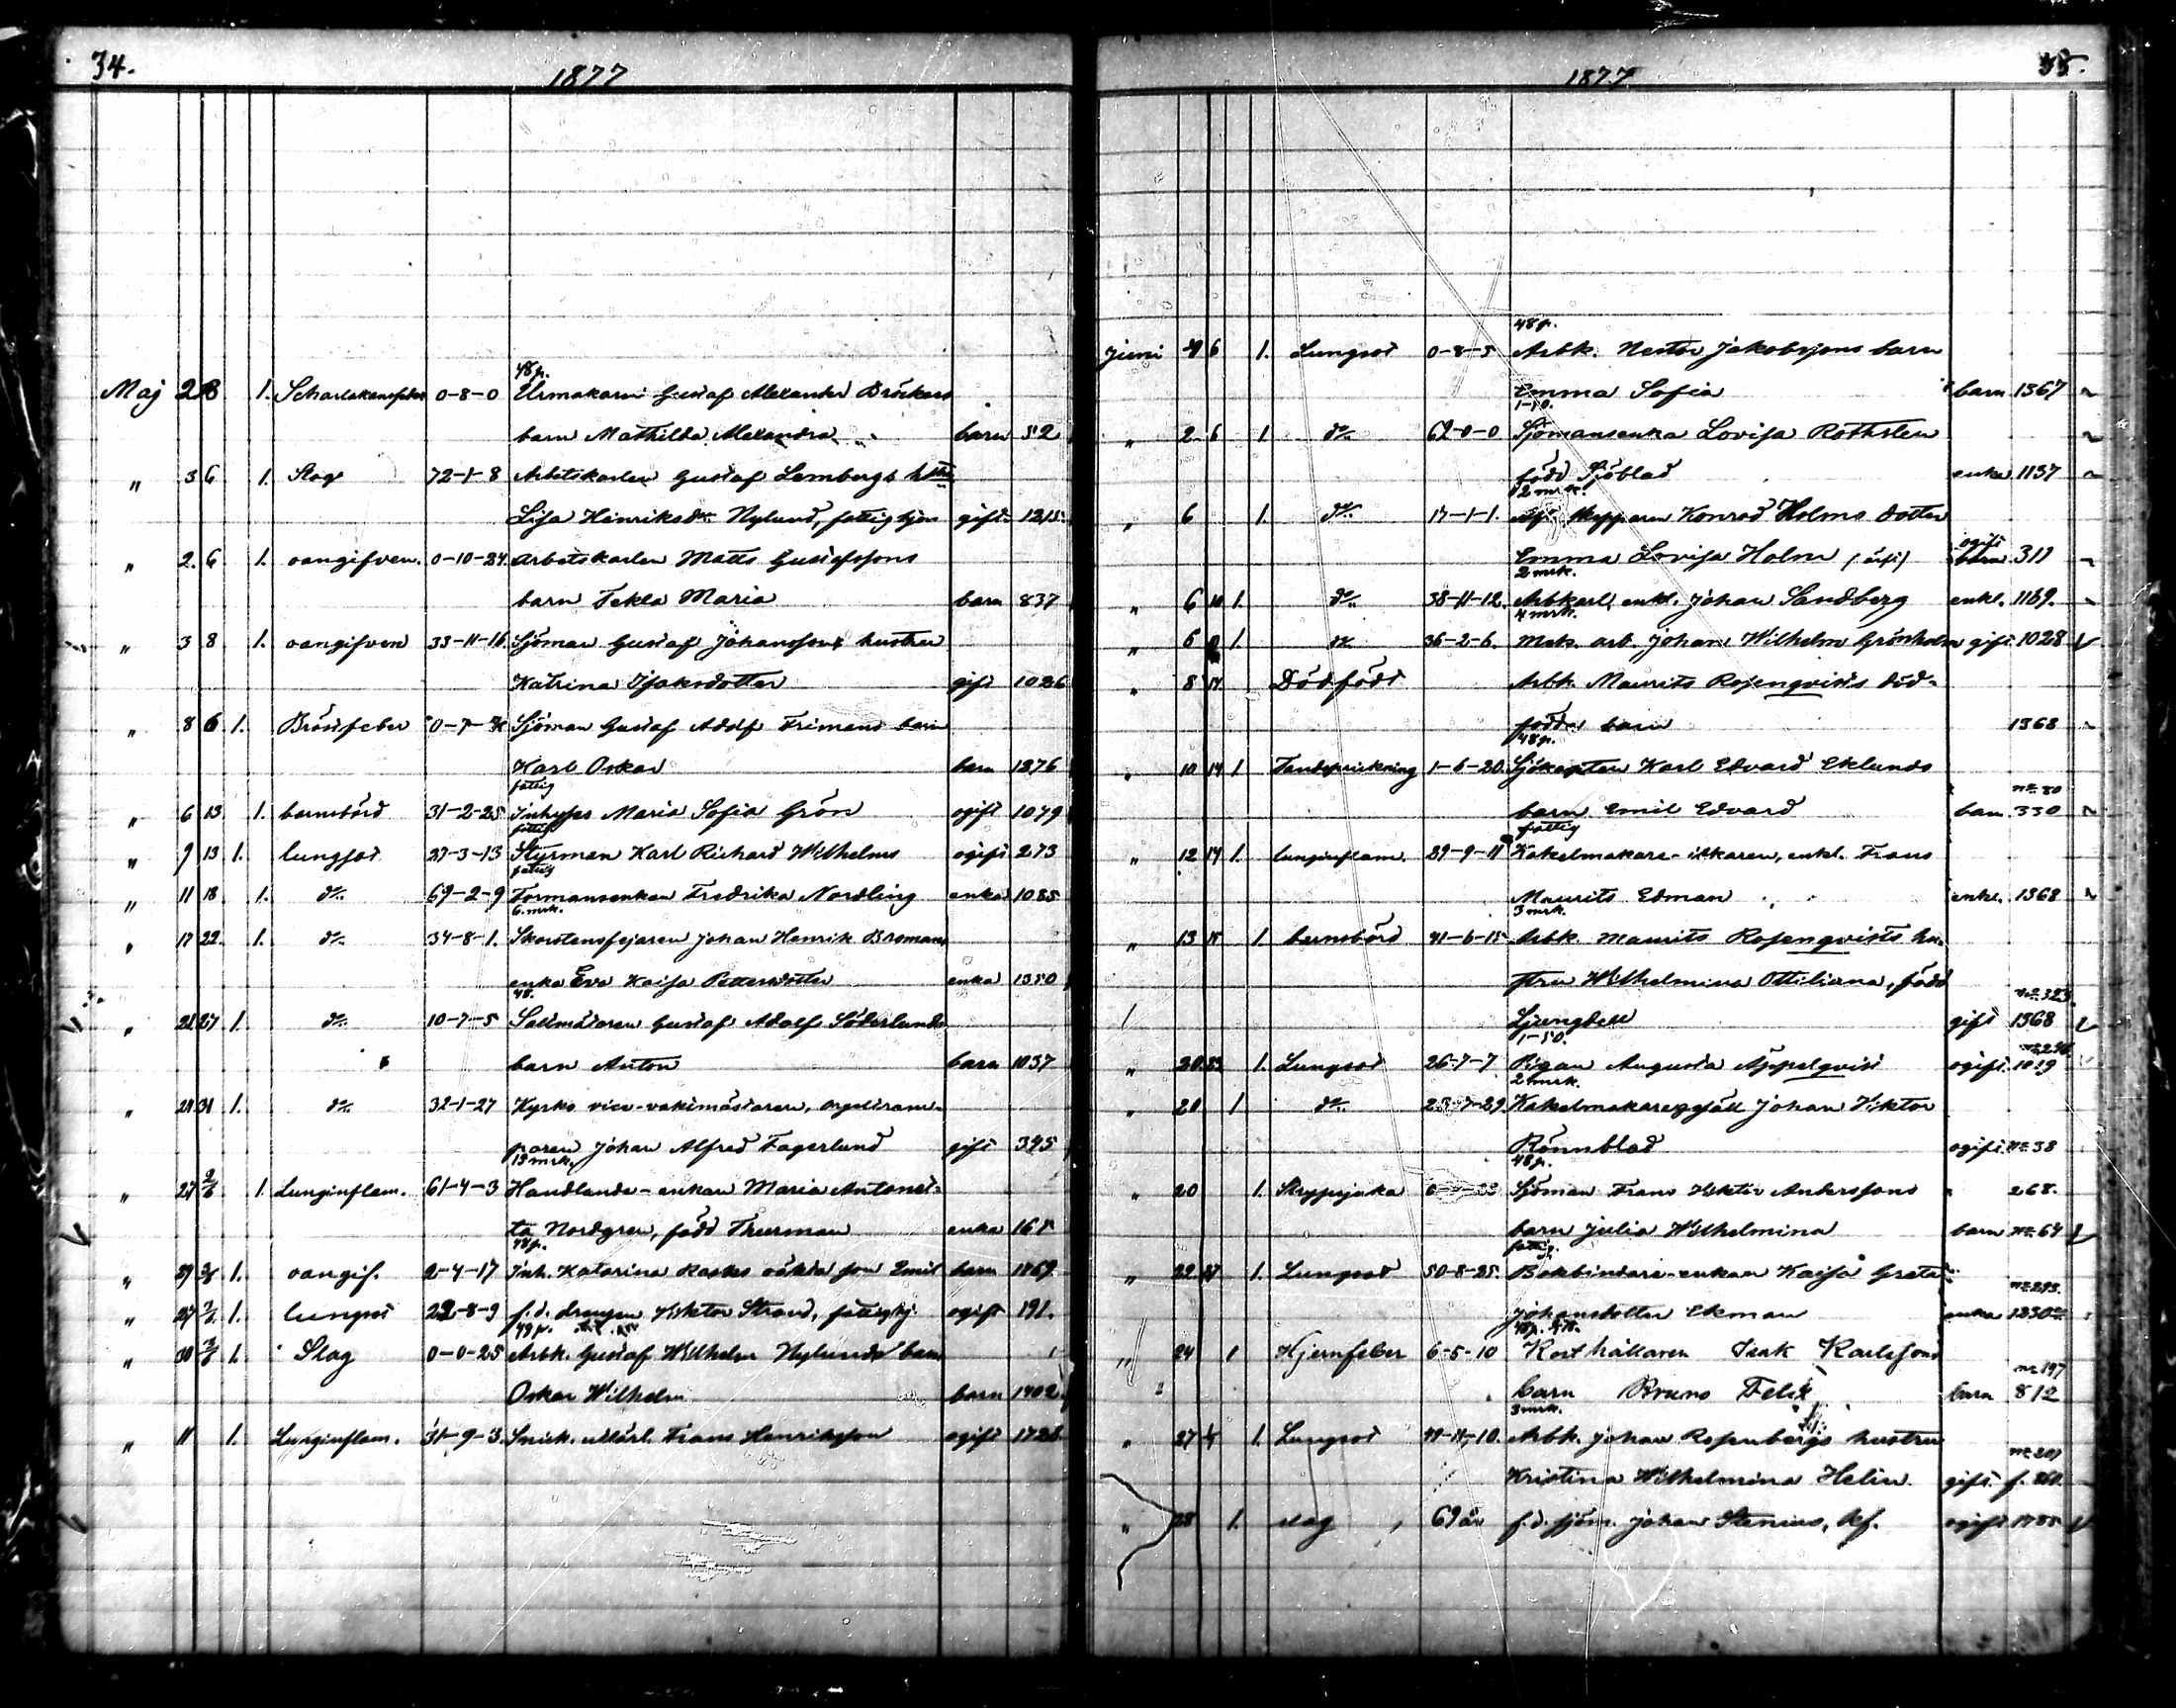 34.
1877
48 p.
Maj 2 8 1. Scharlakansfeber 0-8-0 Urmakare Gustaf Alexander Bröckers
barn Mathilda Alexandra barn 52
" 3 6 1. Slag 72-1-8 Arbetskarlen Gustaf Lembergs hstru
Lisa Henriksdr Nylund, fattighjon gift. 1215.
" 2. 6 1. oangifven. 0-10-24. Arbetskarlen Matts Gustafssons
barn Tekla Maria barn 837
" 3 8 1. oangifven 33-11-16. Sjöman Gustaf Johanssons hustru
Katrina Isaksdotter gift 1026
" 8 6 1. Bröstfeber 0-7- Sjöman Gustaf Adolf Frimans barn
Karl Oskar barn 1376
fattig
" 6 13 1. barnsbörd 31-2-25 Inhyses Maria Sofia Grön ogift 1079
fattig
" 9 13 1. lungsot 27-3-13 Styrman Karl Richard Wilhelms ogift 273
fattig
" 11 18 1. do 69-2-9 Formansenkan Fredrika Nordling enka 1085
6. mrk.
" 17 22. 1. do 34-8-1. Skorstensfejaren Johan Henrik Bromans
enka Eva Kaisa Pettersdotter enka 1350
48.
" 21 27 1. do 10-7-5 Gustaf Adolf Söderlunds
barn Anton barn 1037
" 21 31 1. do 32-1-27 Kyrko vice-vaktmästaren, orgeltram-
paren Johan Alfred Fagerlund gift 395
13 mrk.
" 27 2/6 1. Lunginflam. 61-4-3 Handlande-enkan Maria Antonet-
ta Nordgren, född Thurman enka 165
48 p.
" 29 3/6 1. oangif. 2-4-17 Inh. Katarina Rasks oäkta son Emil barn 1769
" 27 3/6 1. lungsot 22-8-9 f. d. drengen Viktor Strand, fattighj. ogift 191.
48 p.
" 30 3/6 1. Slag 0-0-25 Arbk. Gustaf Wilhelm Nylunds barn
Oskar Wilhelm barn 1402
" 11 1. Lunginflam. 31-9-3. Snick. utlärl. Frans Henriksson ogift 1728
1877
35.
48 p.
Juni 4 6 1. Lungsot 0-8-5 Arbk. Nestor Jakobssons barn
Emma Sofia barn 1367
1-10.
" 2 6 1 do 62-0-0 Sjömansenka Lovisa Rothsten
född Sjöblad enka 1137
2 mrk.
" 6 1. do 17-1-1. Skepparen Konrad Holms dotter
Emma Lovisa Holm ogift barn 311
2 mrk.
" 6 10 1. do 38-11-12. Arbkarl, enkl. Johan Sandberg enkl. 1169.
4 mrk.
" 6 1. do 36-2-6. Mek. arb. Johan Wilhelm Grönholm gift 1028
" 8 14 Dödfödt Arbk. Maurits Rosenqvists död-
födda barn 1368
48 p.
" 10 14 1 Tandsprickning 1-6-20. Sjökapten Karl Edvard Eklunds
no 80
barn Emil Edvard barn 330
fattig
" 12 14 1. lunginflam. 29-9-11 Kakelmakare-, enkl. Frans
Maurits Edman enkl. 1368
3 mrk.
" 13 15 1 barnsbörd 41-6-15 Arbk. Maurits Rosenqvists hu-
stru Wilhelmina Ottiliana, född
no 323.
Ljungdell gift 1368
1-50.
" 20 23 1. Lungsot 26-7-7 Pigan Augusta Äppelqvist ogift. 1019
2 mrk.
" 20 1 do 23-7-29 Kakelmakaregesäll Johan Viktor
Rönnblad ogift. no 38
48 p.
" 20 1. Strypsjuka Sjöman Frans Viktor Anderssons 268.
barn Julia Wilhelmina barn no 64
fattig.
" 22 27 1. Lungsot 50-8-25. Bokbindare-enkan Kaisa Greta
no 293.
Johansdotter Ekman enka 1330
48 p.
" 24 1 Hjernfeber 6-5-10 Korthållaren Isak Karlssons
no 197
barn Bruno Felix barn 812
3 mrk.
" 27 1. Lungsot 44-11-10. Arbk. Johan Rosenbergs hustru
no 201
Kristina Wilhelmina Helin gift. f. 260.
" 28 1. slag 69 år f. d. sjöm. Johan Stenius, kf. ogift 1785